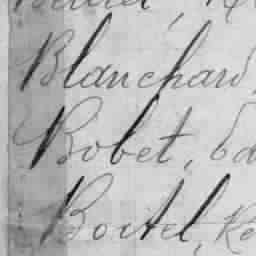 Blanchard,
Bobet, 6d
Boitel, Re